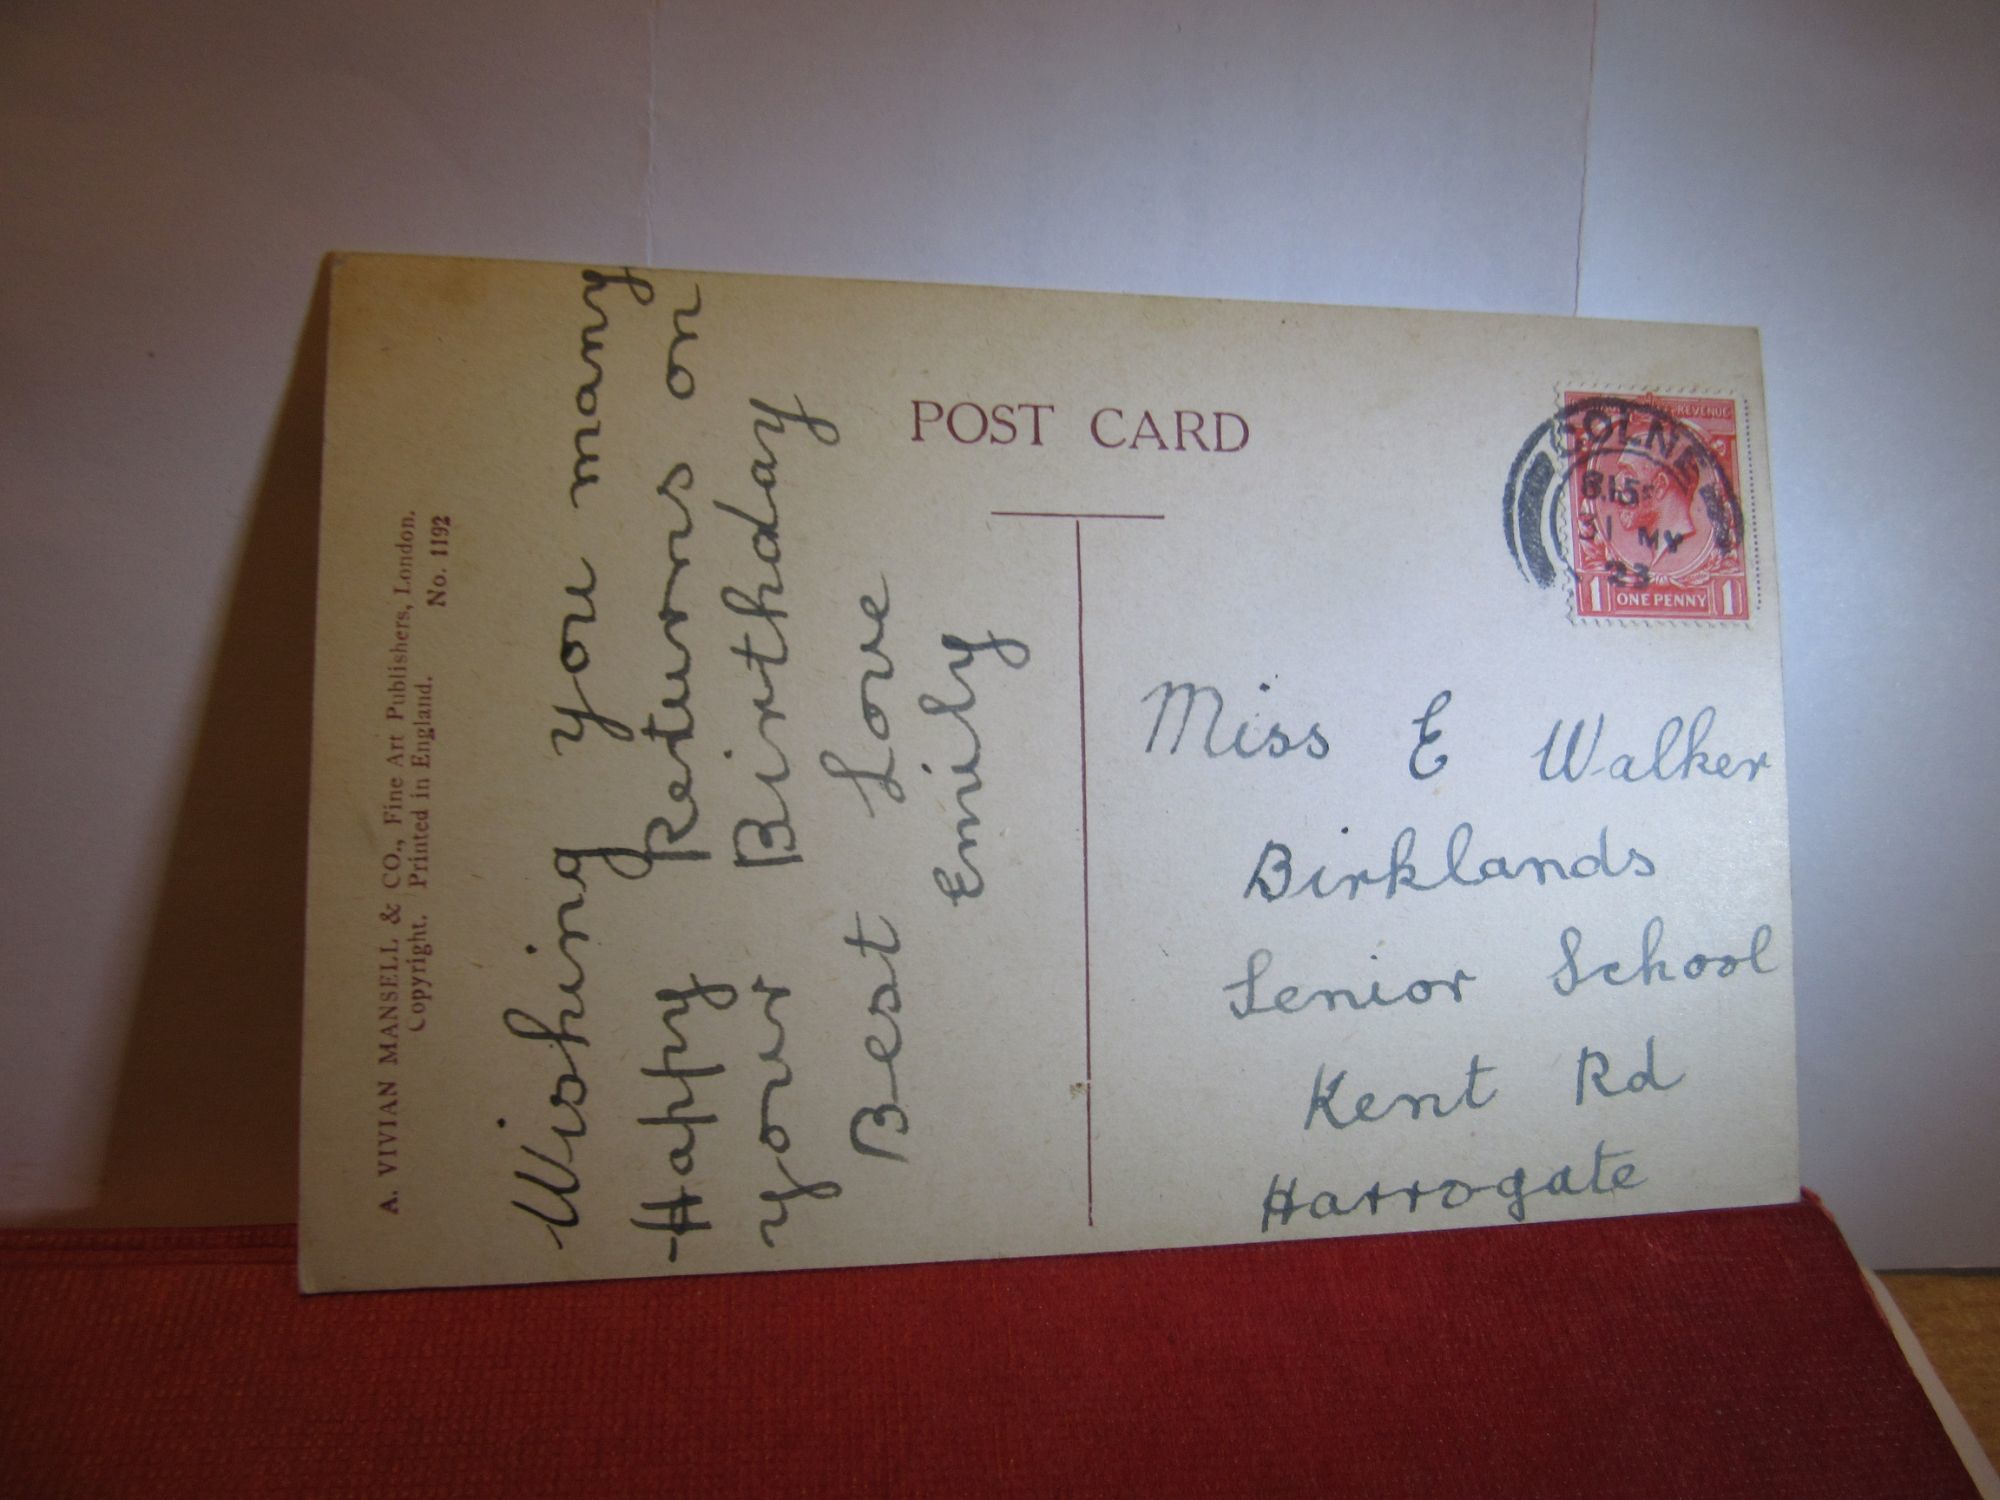 A. VIVIAN MANSELL & CO., Fine Art Publishers, London.
Copyright. Printed in England. No. 1192
Wishing you many
Happy Returns on
your Birthday
Best Love
Emily
POST CARD
REVENUE
COLNE
31 MY
23
1 ONE PENNY 1
Miss E Walker
Birklands
Senior School
Kent Rd
Harrogate